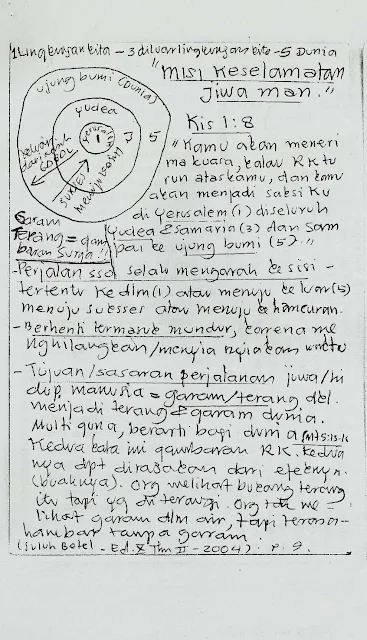 1 Lingkungan kita - 3 diluar lingkungan kita - 5 Dunia
"Misi Keselamatan
Jiwa man."
ujung bumi (Dunia)
Yudea
Yerusalem
1
3
5
Kis 1:8
"Kamu akan meneri
ma kuasa, kalau RK tu
run atas kamu, dan kamu
akan menjadi saksi Ku
di Yerusalem (1) diseluruh
Yudea & Samaria (3) dan Sam
pai ke ujung bumi (5)."
Garam
Terang = gam
baran Surga!!
- Perjalan sso selalu mengarah ke sisi -
tertentu ke dlm (1) atau menuju ke luar (5)
menuju sukses atau menuju kehancuran.
- Berhenti termasuk mundur, karena me
nghilangkan/menyia nyiakan waktu
- Tujuan/sasaran perjalanan jiwa/hi
dup manusia = garam/terang dll.
menjadi terang & garam dunia.
Multi guna, berarti bagi dunia (Mt 5:13-16
Kedua kata ini gambaran RK. Kedua
nya dpt dirasakan dari efeknya.
(buahnya). Org melihat bukang terang
itu tapi yg di terangi. Org tdk me -
lihat garam dlm air, tapi terasa -
hambar tanpa garam.
(Suluh Betel - Ed. X Thn II - 2004). p. 9.